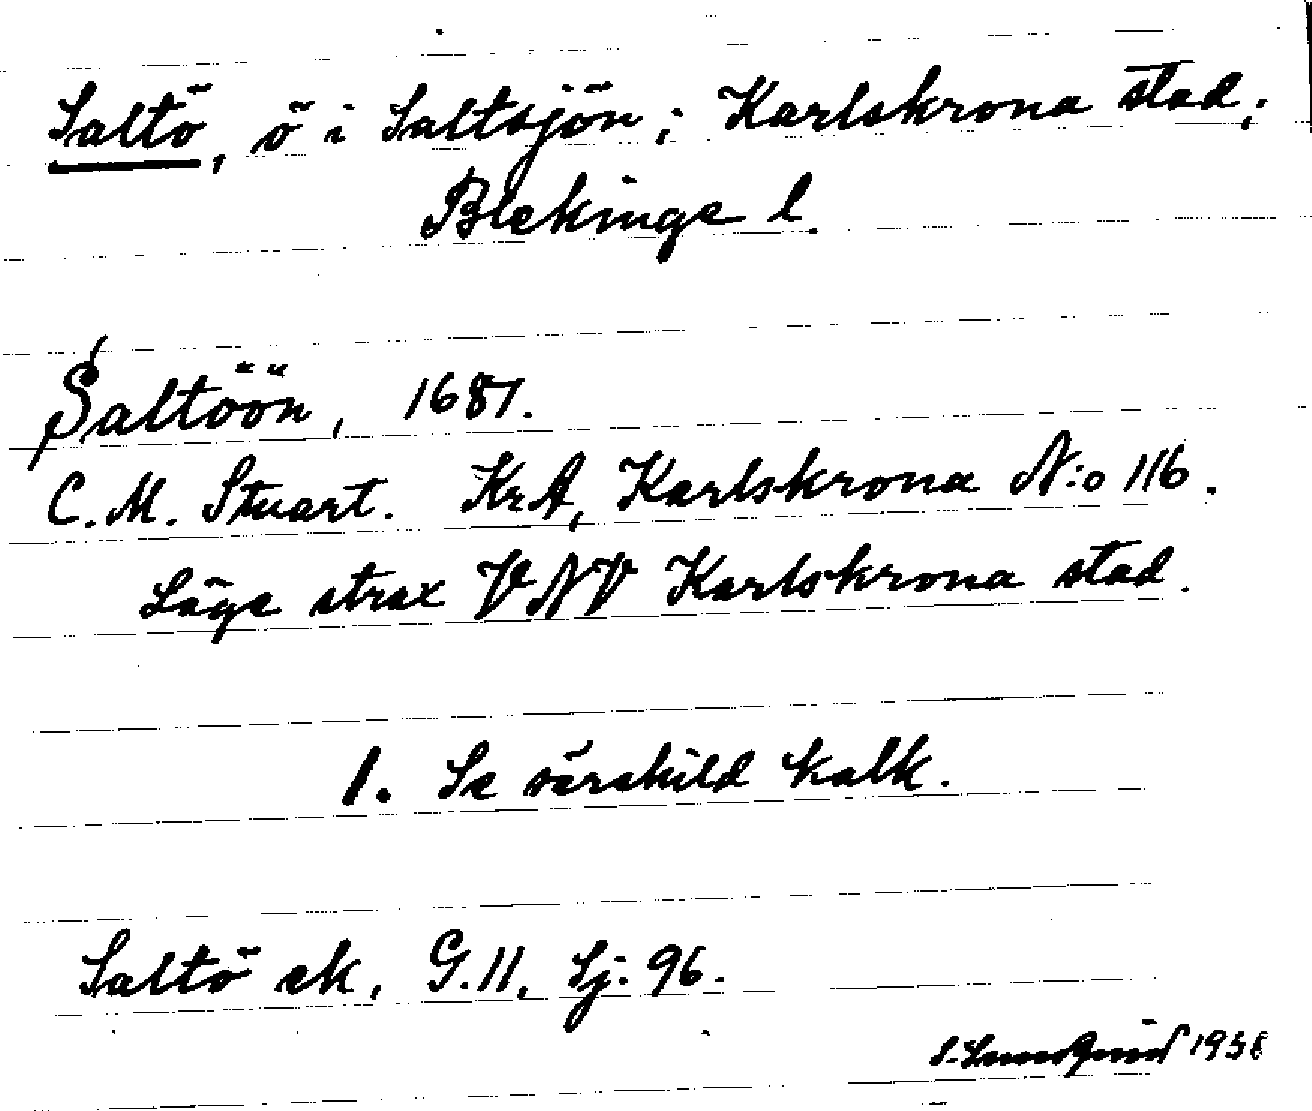 Saltö, ö i Saltsjön; Karlskrona stad;
Blekinge l.
Saltöön, 1687.
C. M. Stuart. KrA, Karlskrona N:o 116.
Läge strax VNV Karlskrona stad.
1. Se särskild kalk.
Saltö ek, G.11, Sj: 96.
S. Lundquist 1938